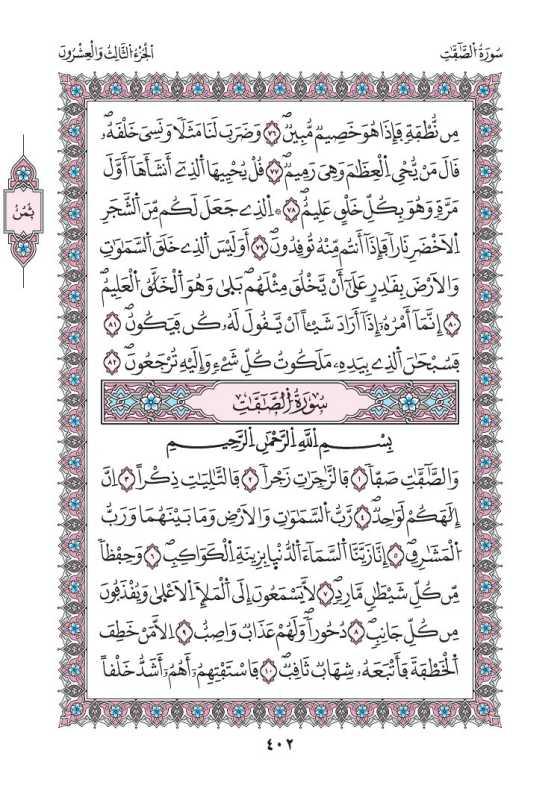 سُورَةُ الصَّٰٓفَّٰتِ
الْجُزْءُ الثَّالِثُ وَالْعِشْرُونَ
مِن نُّطْفَةٍ فَإِذَا هُوَ خَصِيمٌ مُّبِينٌۖ ٧٦ وَضَرَبَ لَنَا مَثَلًا وَنَسِيَ خَلْقَهُۥۖ
قَالَ مَنْ يُّحْيِ اِ۬لْعِظَٰمَ وَهِيَ رَمِيمٌۖ ٧٧ قُلْ يُحْيِيهَا اَ۬لذِےٓ أَنشَأَهَآ أَوَّلَ
مَرَّةٍ وَهُوَ بِكُلِّ خَلْقٍ عَلِيمٌۖ ٧٨ اِ۬لذِے جَعَلَ لَكُم مِّنَ اَ۬لشَّجَرِ
اِ۬لَاخْضَرِ نَارًا فَإِذَآ أَنتُم مِّنْهُ تُوقِدُونَۖ ٧٩ أَوَلَيْسَ اَ۬لذِے خَلَقَ اَ۬لسَّمَٰوَٰتِ
وَالَارْضَ بِقَٰدِرٍ عَلَىٰٓ أَنْ يَّخْلُقَ مِثْلَهُمۖ بَلَىٰ وَهُوَ اَ۬لْخَلَّٰقُ اُ۬لْعَلِيمُۖ
٨٠ إِنَّمَآ أَمْرُهُۥٓ إِذَآ أَرَادَ شَيْـًٔا اَنْ يَّقُولَ لَهُۥ كُن فَيَكُونُۖ ٨١
فَسُبْحَٰنَ اَ۬لذِے بِيَدِهِۦ مَلَكُوتُ كُلِّ شَےْءٍ وَإِلَيْهِ تُرْجَعُونَۖ ٨٢
ثُمُنُ
سُورَةُ الصَّٰٓفَّٰتِ
بِسْمِ اِ۬للَّهِ اِ۬لرَّحْمَٰنِ اِ۬لرَّحِيمِ
وَالصَّٰٓفَّٰتِ صَفّٗا ١ فَالزَّٰجِرَٰتِ زَجْرٗا ٢ فَالتَّٰلِيَٰتِ ذِكْرًا ٣ اِنَّ
إِلَٰهَكُمْ لَوَٰحِدٌۖ ٤ رَّبُّ السَّمَٰوَٰتِ وَالَارْضِ وَمَا بَيْنَهُمَا وَرَبُّ
اُ۬لْمَشَٰرِقِۖ ٥ إِنَّا زَيَّنَّا اَ۬لسَّمَآءَ اَ۬لدُّنْيَا بِزِينَةِ اِ۬لْكَوَاكِبِۖ ٦ وَحِفْظٗا
مِّن كُلِّ شَيْطَٰنٍ مَّارِدٍۖ ٧ لَّا يَسْمَعُونَ إِلَى اَ۬لْمَلَإِ اِ۬لَاعْلَىٰ وَيُقْذَفُونَ
مِن كُلِّ جَانِبٍۖ ٨ دُحُورٗاۖ وَلَهُمْ عَذَابٌ وَاصِبٌ ٩ اِلَّا مَنْ خَطِفَ
اَ۬لْخَطْفَةَ فَأَتْبَعَهُۥ شِهَابٌ ثَاقِبٌۖ ١٠ فَاسْتَفْتِهِمُۥٓ أَهُمُۥٓ أَشَدُّ خَلْقًا
٤٠٢